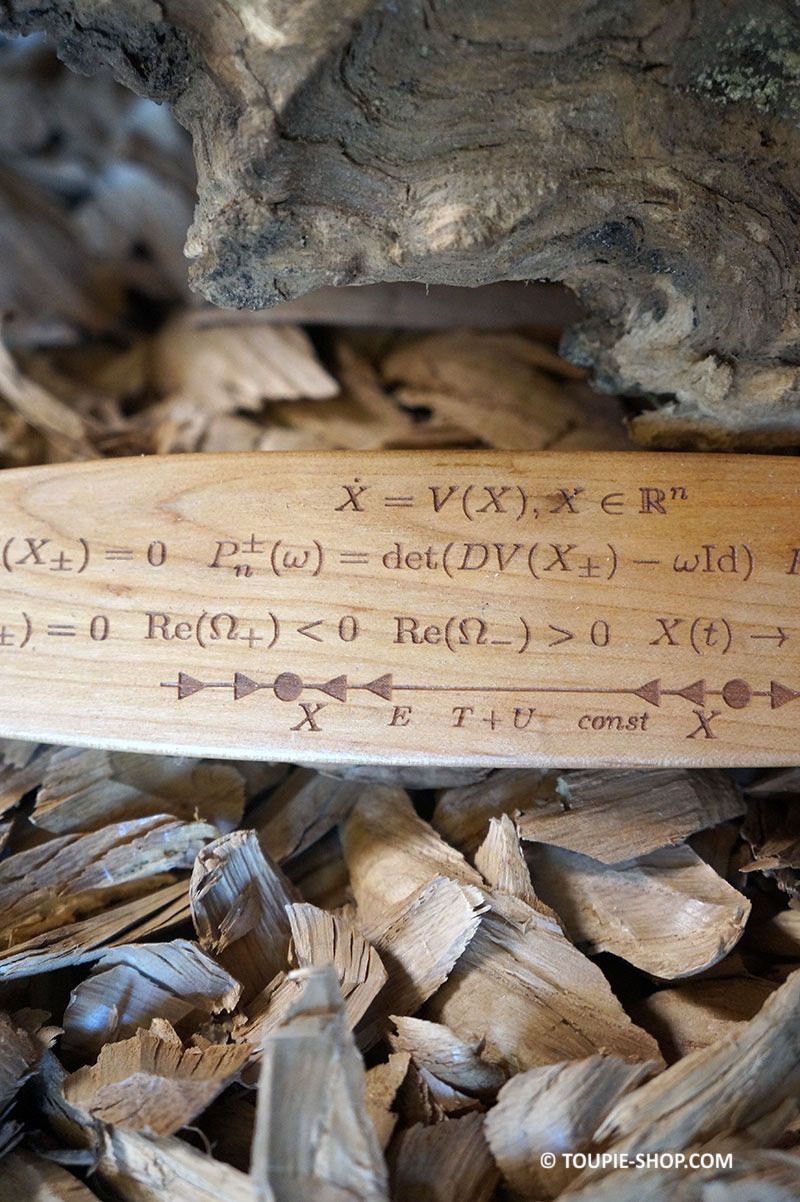 Ẋ = V(X), X ∈ ℝⁿ
(X±) = 0 Pₙ±(ω) = det(DV(X±) − ωId)
±) = 0 Re(Ω₊) < 0 Re(Ω₋) > 0 X(t) →
X E T + U const X
© TOUPIE-SHOP.COM